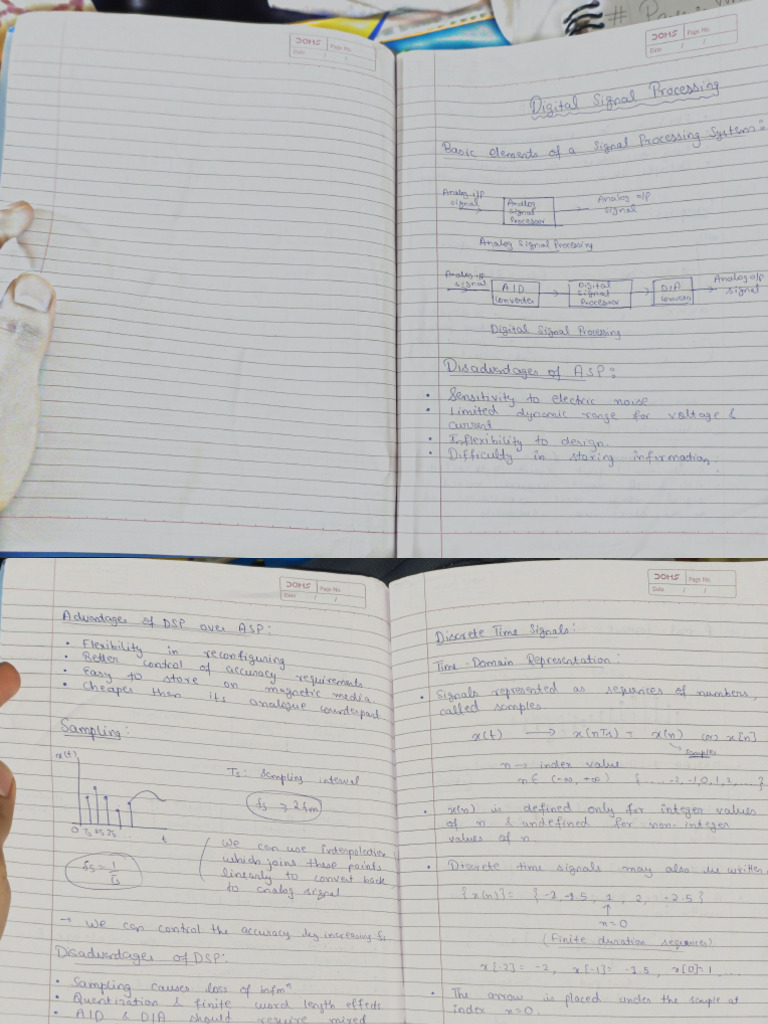 DOMS
Page No.
Date / /
DOMS
Page No.
Date / /
Digital Signal Processing
Basic elements of a Signal Processing System:
Analog i/p signal
Analog Signal Processor
Analog o/p signal
Analog Signal Processing
Analog signal
A/D Converter
Digital Signal Processor
D/A
Analog o/p signal
Digital Signal Processing
Disadvantages of ASP:
• Sensitivity to electric noise
• Limited dynamic range for voltage &
current
• Inflexibility to design.
• Difficulty in storing information.
DOMS
Page No.
Date / /
Advantages of DSP over ASP:
• Flexibility in reconfiguring
• Better control of accuracy requirements
• Easy to store on magnetic media.
• Cheaper than its analogue counterpart.
Sampling:
x(t)
Ts: Sampling interval
fs > 2fm
0 Ts 2Ts 3Ts
t
fs = 1/Ts
We can use Interpolation
which joins these points
linearly to convert back
to analog signal
→ We can control the accuracy by increasing fs
Disadvantages of DSP:
• Sampling causes loss of infmⁿ
• Quantization & finite word length effects
• A/D & D/A should require mixed
DOMS
Page No.
Date / /
Discrete Time Signals:
Time-Domain Representation:
• Signals represented as sequences of numbers,
called samples
x(t) → x(nTs) = x(n) or x[n]
samples
n → index value
n ∈ (-∞, +∞) {...., -2, -1, 0, 1, 2, ....}
• x(n) is defined only for integer values
of n & undefined for non-integer
values of n.
• Discrete time signals may also be written
{x(n)} = {-2, -1.5, 1, 2, -2.5}
↑
n=0
(finite duration sequences)
x[-2] = -2, x[-1] = -1.5, x[0]=1, ...
• The arrow is placed under the sample at
index n=0.